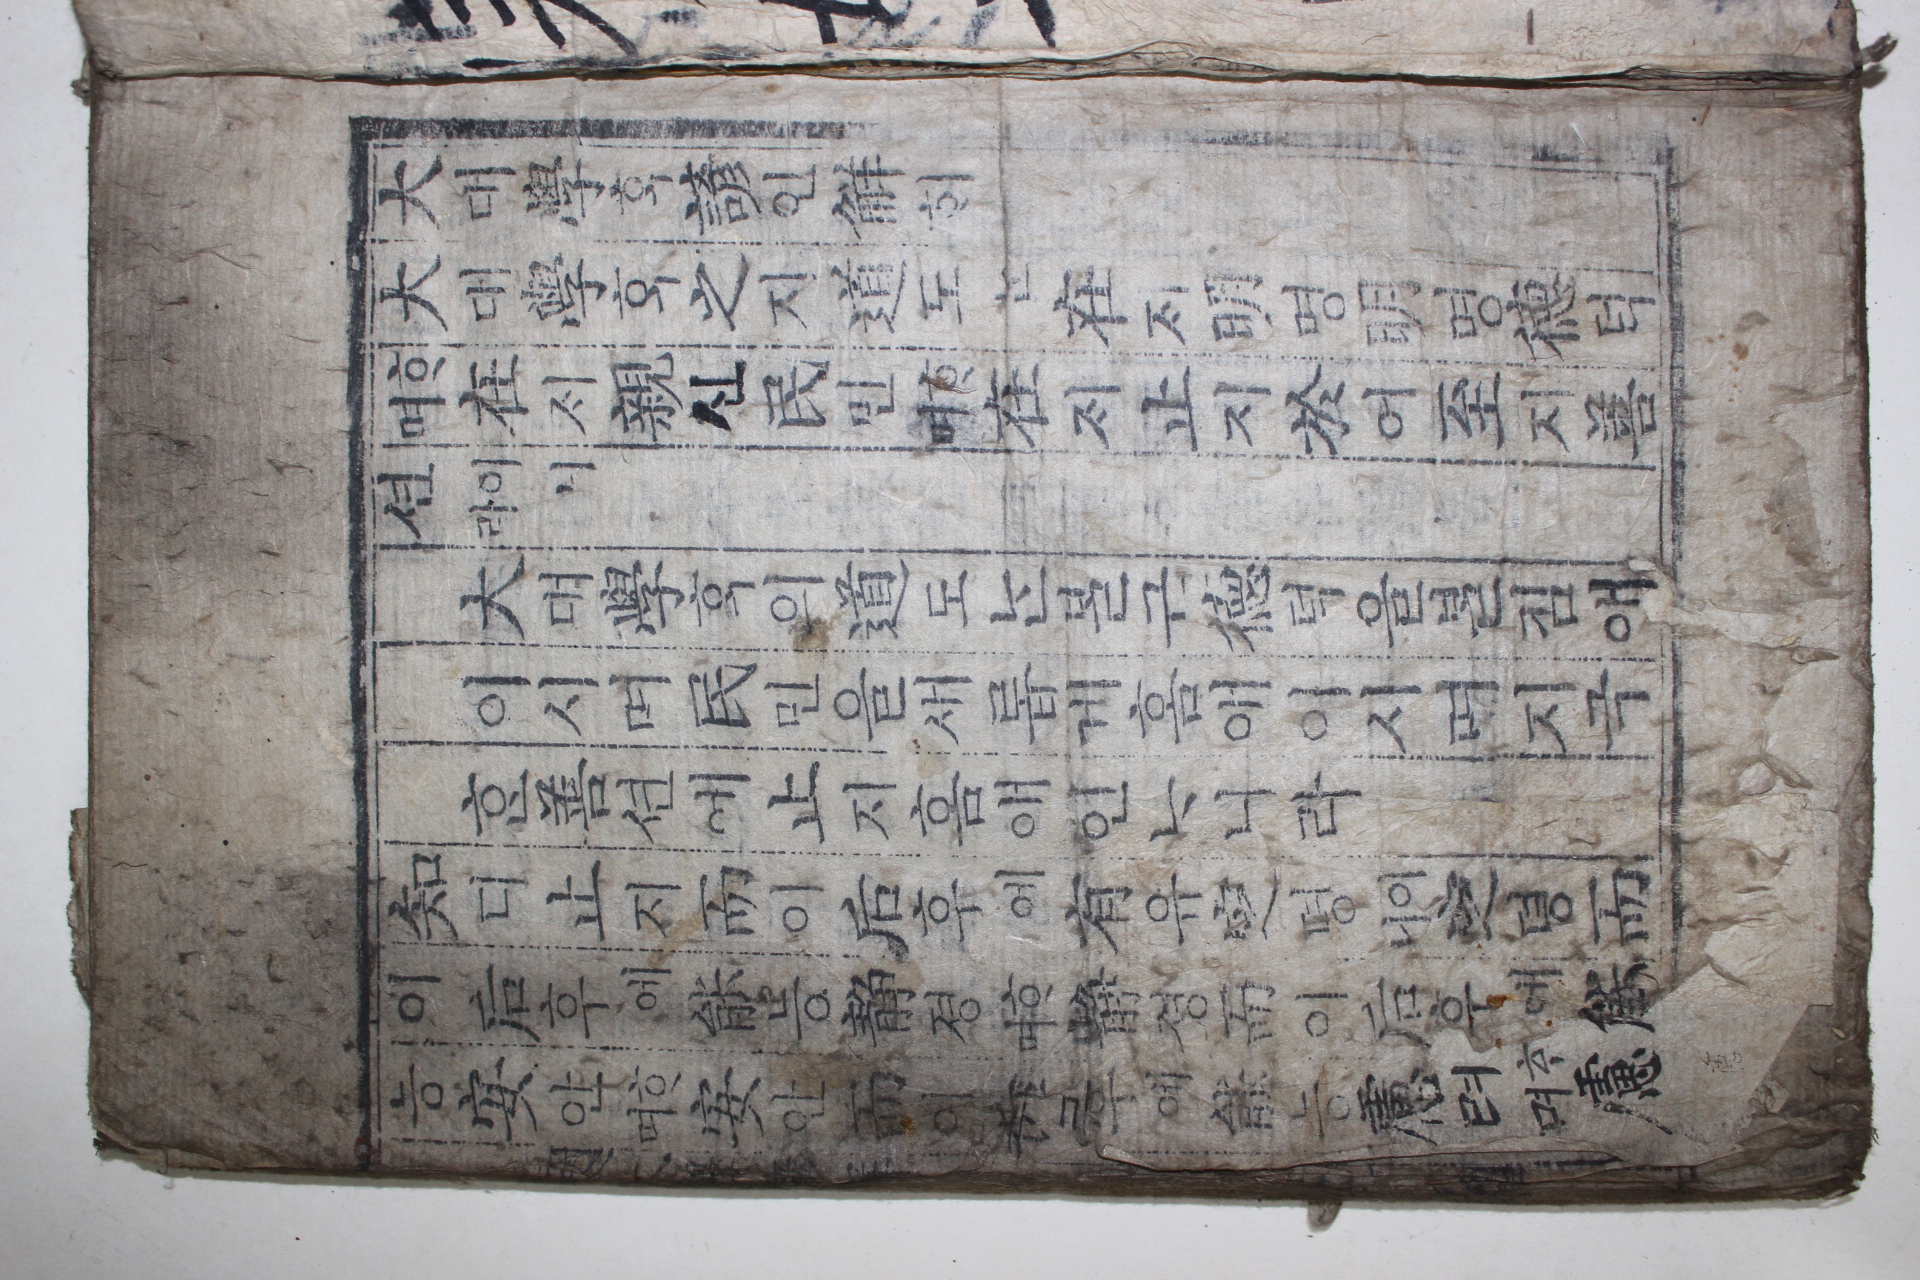 大대學ᄒᆞᆨ諺언解ᄒᆡ
大대學ᄒᆞᆨ之지道도ᄂᆞᆫ在ᄌᆡ明명明명德덕
ᄒᆞ며在ᄌᆡ親신民민ᄒᆞ며在ᄌᆡ止지於어至지善
션이니라
大대學ᄒᆞᆨ의道도ᄂᆞᆫᄇᆞᆯᄀᆞᆫ德덕을ᄇᆞᆯ킴애
이시며民민을새롭게홈애이시며지극
ᄒᆞᆫ善션에止지홈애인ᄂᆞ니라
知디止지而이后후에有유定뎡이니定뎡而
이后후에能능靜졍ᄒᆞ며靜졍而이后후에能
능安안ᄒᆞ며安안而이后후에能능慮려ᄒᆞ며慮